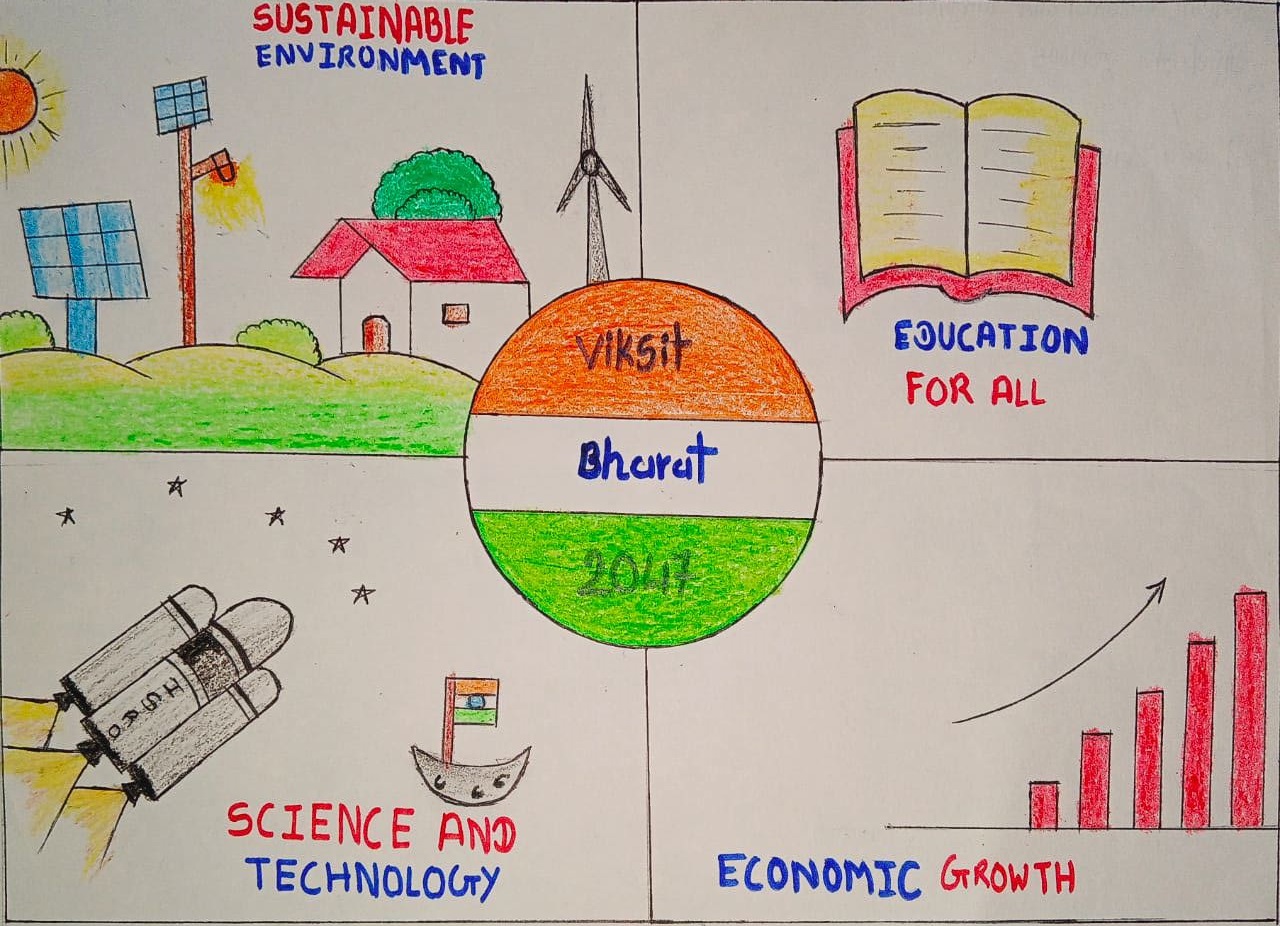 SUSTAINABLE
ENVIRONMENT
EDUCATION
FOR ALL
Viksit
Bharat
2047
ISRO
SCIENCE AND
TECHNOLOGY
ECONOMIC GROWTH